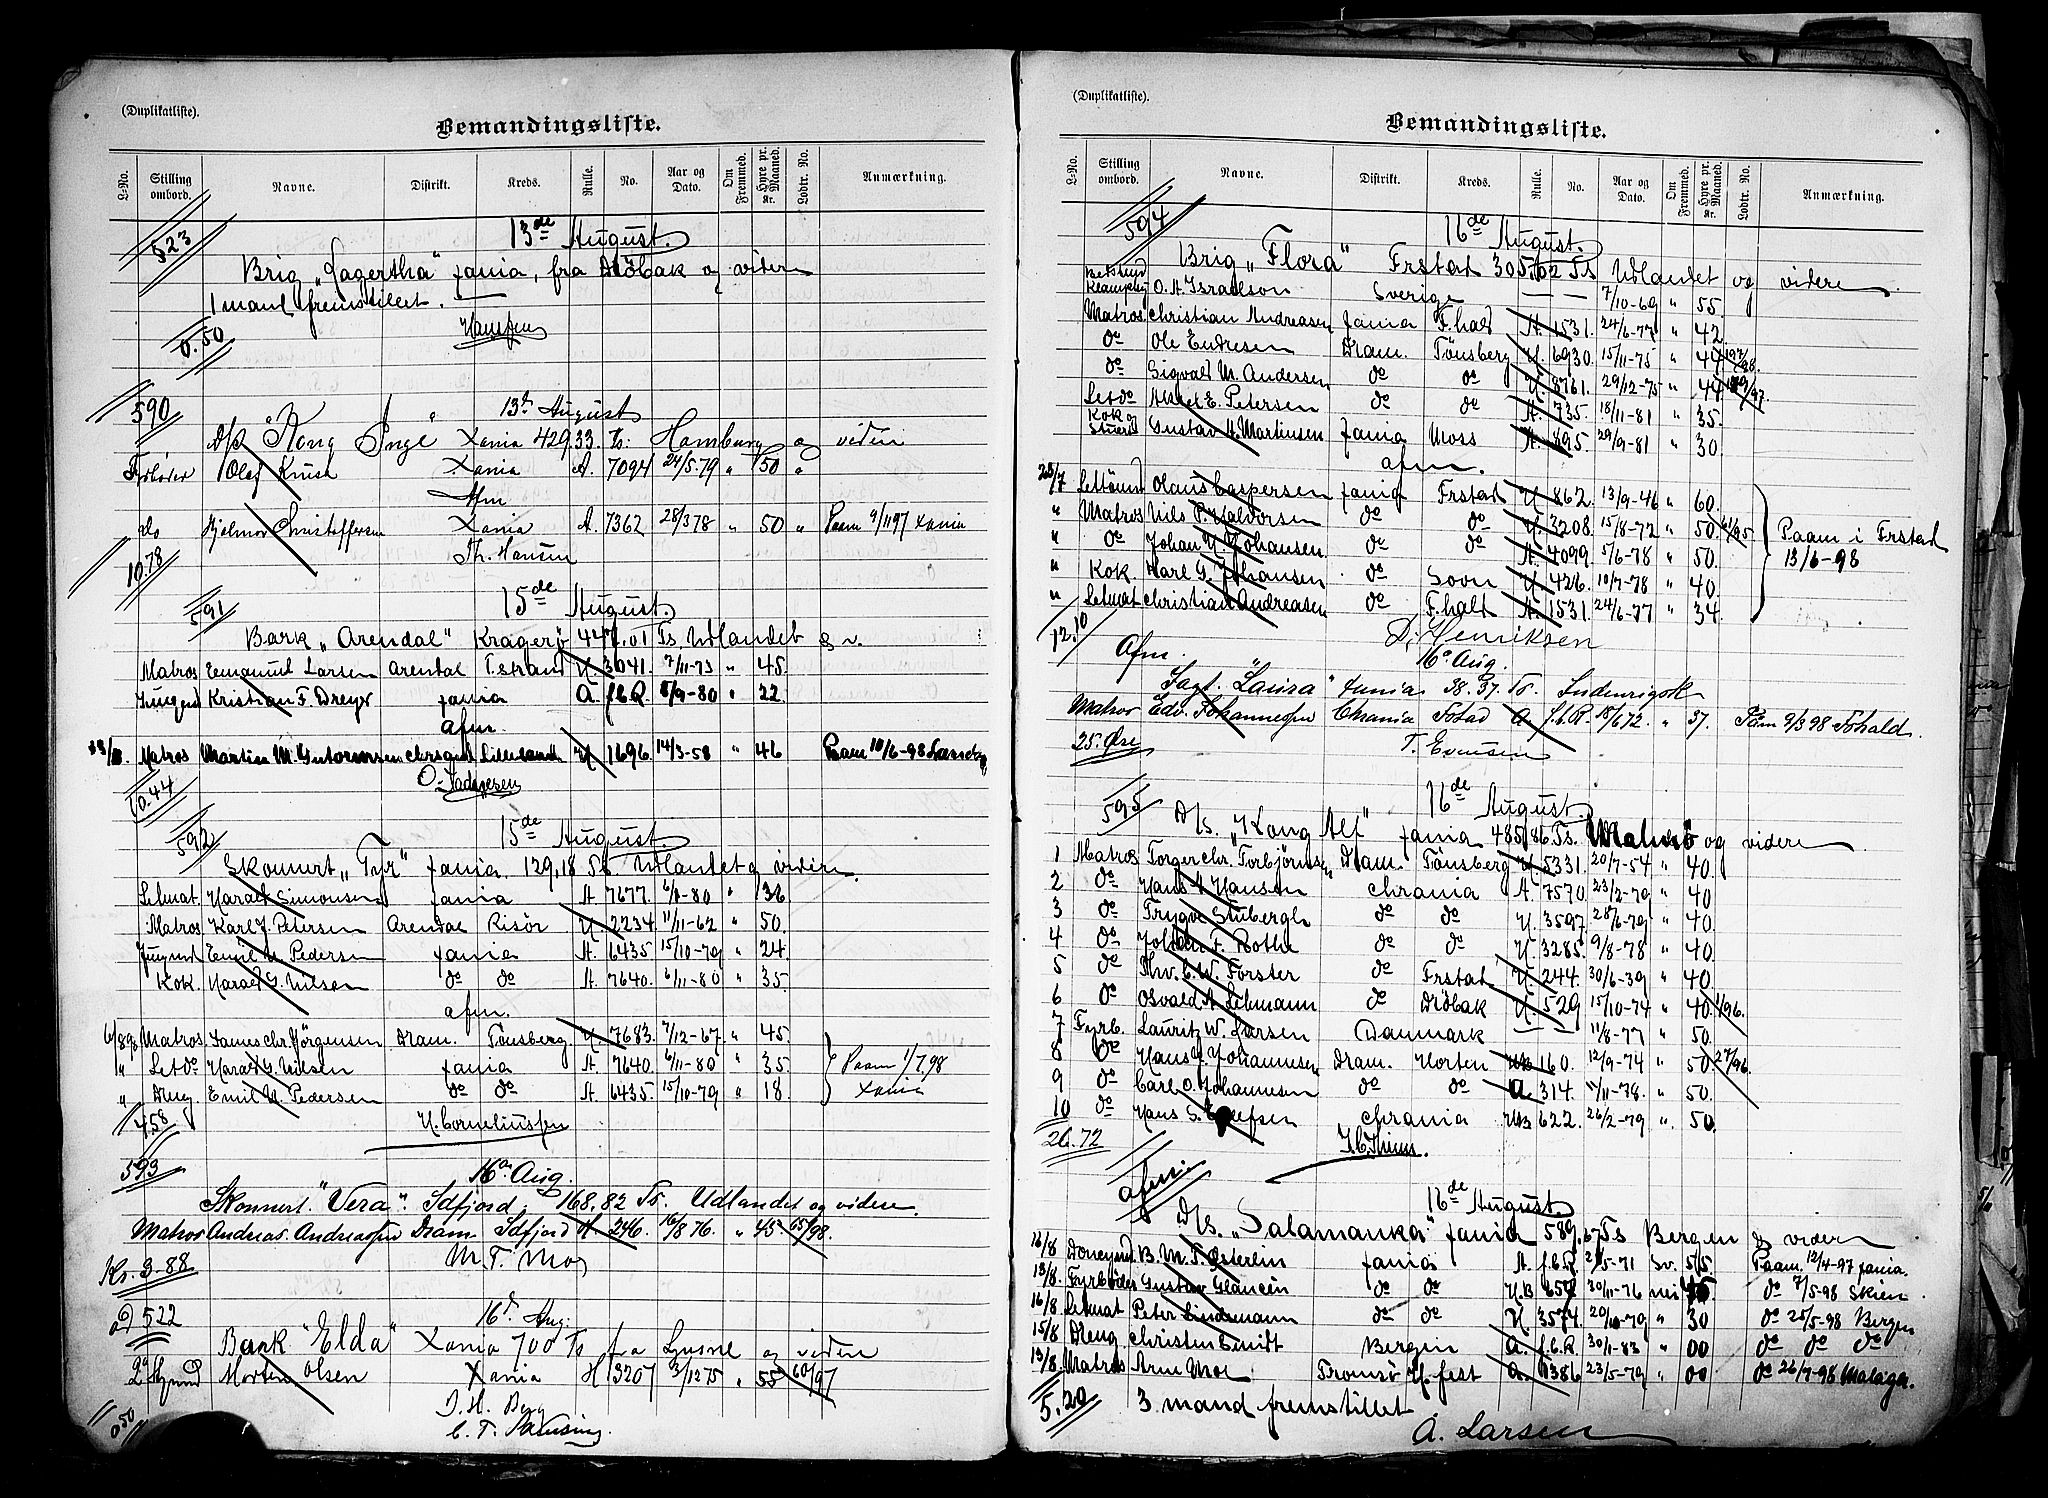 (Duplikatliste).
Bemandingsliste.
L-No. Stilling ombord. Navne. Distrikt. Kreds. Rulle. No. Aar og Dato. Om Fremmed. Hyre pr. Maaned. Kr. Lodtr. No. Anmærkning.
523 13de August.
Brig „Lagertha" fania, fra Dröbak og videre
1 mand fremstillet.
0.50 Hanssen
590 13de August
D/s "Kong Inge" Xania 429.33 Ts: Hamburg og videre
Fyrböder Olaf Kruse Xania A. 7094 24/5-79 " 50 "
Afm
do Hjalmar Christoffersen Xania A. 7362 28/3 78 " 50 " Paam 9/11 97 Xania
10.78 Th. Hansen
591 15de August.
Bark „Arendal" Kragerö 447.01 Ts. Udlandet o. v.
Matros Emanuel Larsen Arendal T.strand H. 3041. 7/11-75 " 45.
Jungm Kristian F. Dreyer fania A. f.C.R. 5/9-80 " 22
afm.
Matros Martin M. Gutormsen Chrsand Lillesand H 1696 14/3-58 " 46 Paam 10/6-98
10.44
592 15de August.
Skonnert „Tyr" fania. 129,18 Ts. Udlandet og videre.
Letmat. Harald Simonsen fania A 7677. 6/1-80 " 36
Matros Karl J. Petersen Arendal Risör H 2234 11/11-62 " 50.
Jungmd Emil H. Pedersen fania A. 6435 15/10-79 " 24.
Kok. Harald G. Nilsen do do A. 7640. 6/11-80 " 35.
afm.
6/8 98 Matros James Chr. Jörgensen Dram. Tönsberg H 7683. 7/12-67 " 45.
" Letdo Harald G. Nilsen fania A. 7640. 6/11-80 " 35. Paam 1/7 98
" Dreng Emil H. Pedersen do do A. 6435. 15/10-79 " 18. Xania
4.58 H. Corneliussen
593 16de Aug.
Skonnert. "Vera". Idfjord. 168.82 Ts. Udlandet og videre.
Matros Andreas Andreassen Dram. Idfjord A. 246. 16/8 76. " 45. 65/98.
Kr. 3.88 M. T. Moe
522 16de Aug:
Bark "Elda" Xania 700 Ts fra Ljusne og videre
2den Styrmd Morten Olsen Xania H 3207 3/12 75 " 55 60/97
0.50 D. H. Berg
C. T.
(Duplikatliste).
Bemandingsliste.
L-No. Stilling ombord. Navne. Distrikt. Kreds. Rulle. No. Aar og Dato. Om Fremmed. Hyre pr. Maaned. Kr. Lodtr. No. Anmærkning.
594 16de August.
Brig „Flora" Frstad 305,02 Ts Udlandet og videre
O. A. Israelson Sverige — — 7/10-69 " 55.
Matros Christian Andreasen fania F.hald A. 1531. 24/6-77 " 42.
do Ole Endresen Dram. Tönsberg H. 6930. 15/11-75 " 44
do Sigvald M. Andersen do do H. 8761. 29/12-75 " 44
Letdo Aksel E. Petersen do do A. 735. 18/11-81 " 35.
Kok og Stuert Gustav A. Martinsen fania Moss A. 895. 29/9-81 " 30
afm.
Olaus Caspersen fania Frstad H 862. 13/9-46 " 60.
" Matros Nils P. Halvorsen do do H. 3208. 15/8-72 " 50. Paam i Frstad
" do Johan H. Johansen do do A. 4099. 5/6-78 " 50. 13/6-98
" Kok. Karl G. Johansen do Soon H 426. 10/7-78 " 40
" Letmat Christian Andreasen do F.hald A. 1531 24/6-77 " 34
12.10 D. Henriksen
Afm. 16de Aug.
Jagt. "Laura" fania 38.37 Ts. Indenrigsk
Matros Edv. Johannesen Chrania Fstad A f.C.R. 18/6 72. " 37. Paam 9/3 98 Fshald.
25. Øre T. Evensen
595 16de August.
D/s. „Kong Alf" fania 485,86 Ts. Malmö og videre
1 Matros Torger Chr. Torbjörnsen Dram. Tönsberg H 5331. 20/7-54 " 40.
2 do Hans A. Hansen Chrania A. 7570. 23/2-79 " 40
3 do Trygve Stubergh do do H. 3597. 28/6-79 " 40.
4 do Johan F. Bothe do do H. 3285. 9/8-78 " 40.
5 do Thv. C. W. Forster do Frstad H. 244. 30/6-39 " 40
6 do Osvald A. Lehmann do Dröbak H. 529 15/10-74 " 40
7 Fyrb. Lauritz W. Larsen Danmark — — 11/8-77 " 50.
8 do Hans J. Johannesen Dram. Horten HB 160. 12/9-74 " 50. 27/96.
9 do Carl O. Johannesen do do A. 314. 11/11-78. " 50.
10 do Hans S. Chrania HB 622. 26/2-79 " 50.
26.72
afm. 16de August
D/s. „Salamanka" fania 589,67 Ts Bergen og videre
16/8 Donkeymd B. M. T. Österlin fania A. f.C.R. 2/5-71 Sv. 55. Paam. 12/4-97 fania.
13/8. Fyrböder Gustav Glancén do do H.B 657 30/11-76 nei do 7/5-98 Skien
16/8 Letmat Peter Lindemann do do H. 3574. 20/10-79 " 30 do 25/5-98 Bergen
15/8 Dreng Christen Smidt Bergen A. f.C.R. 30/1-83 " 00 do do do
13/8. Matros Arne Moe Tromsö H.fest A. 1386 23/5-79 " 00 do 26/7-98 Malaga.
5.20 3 mand fremstillet
A. Larsen